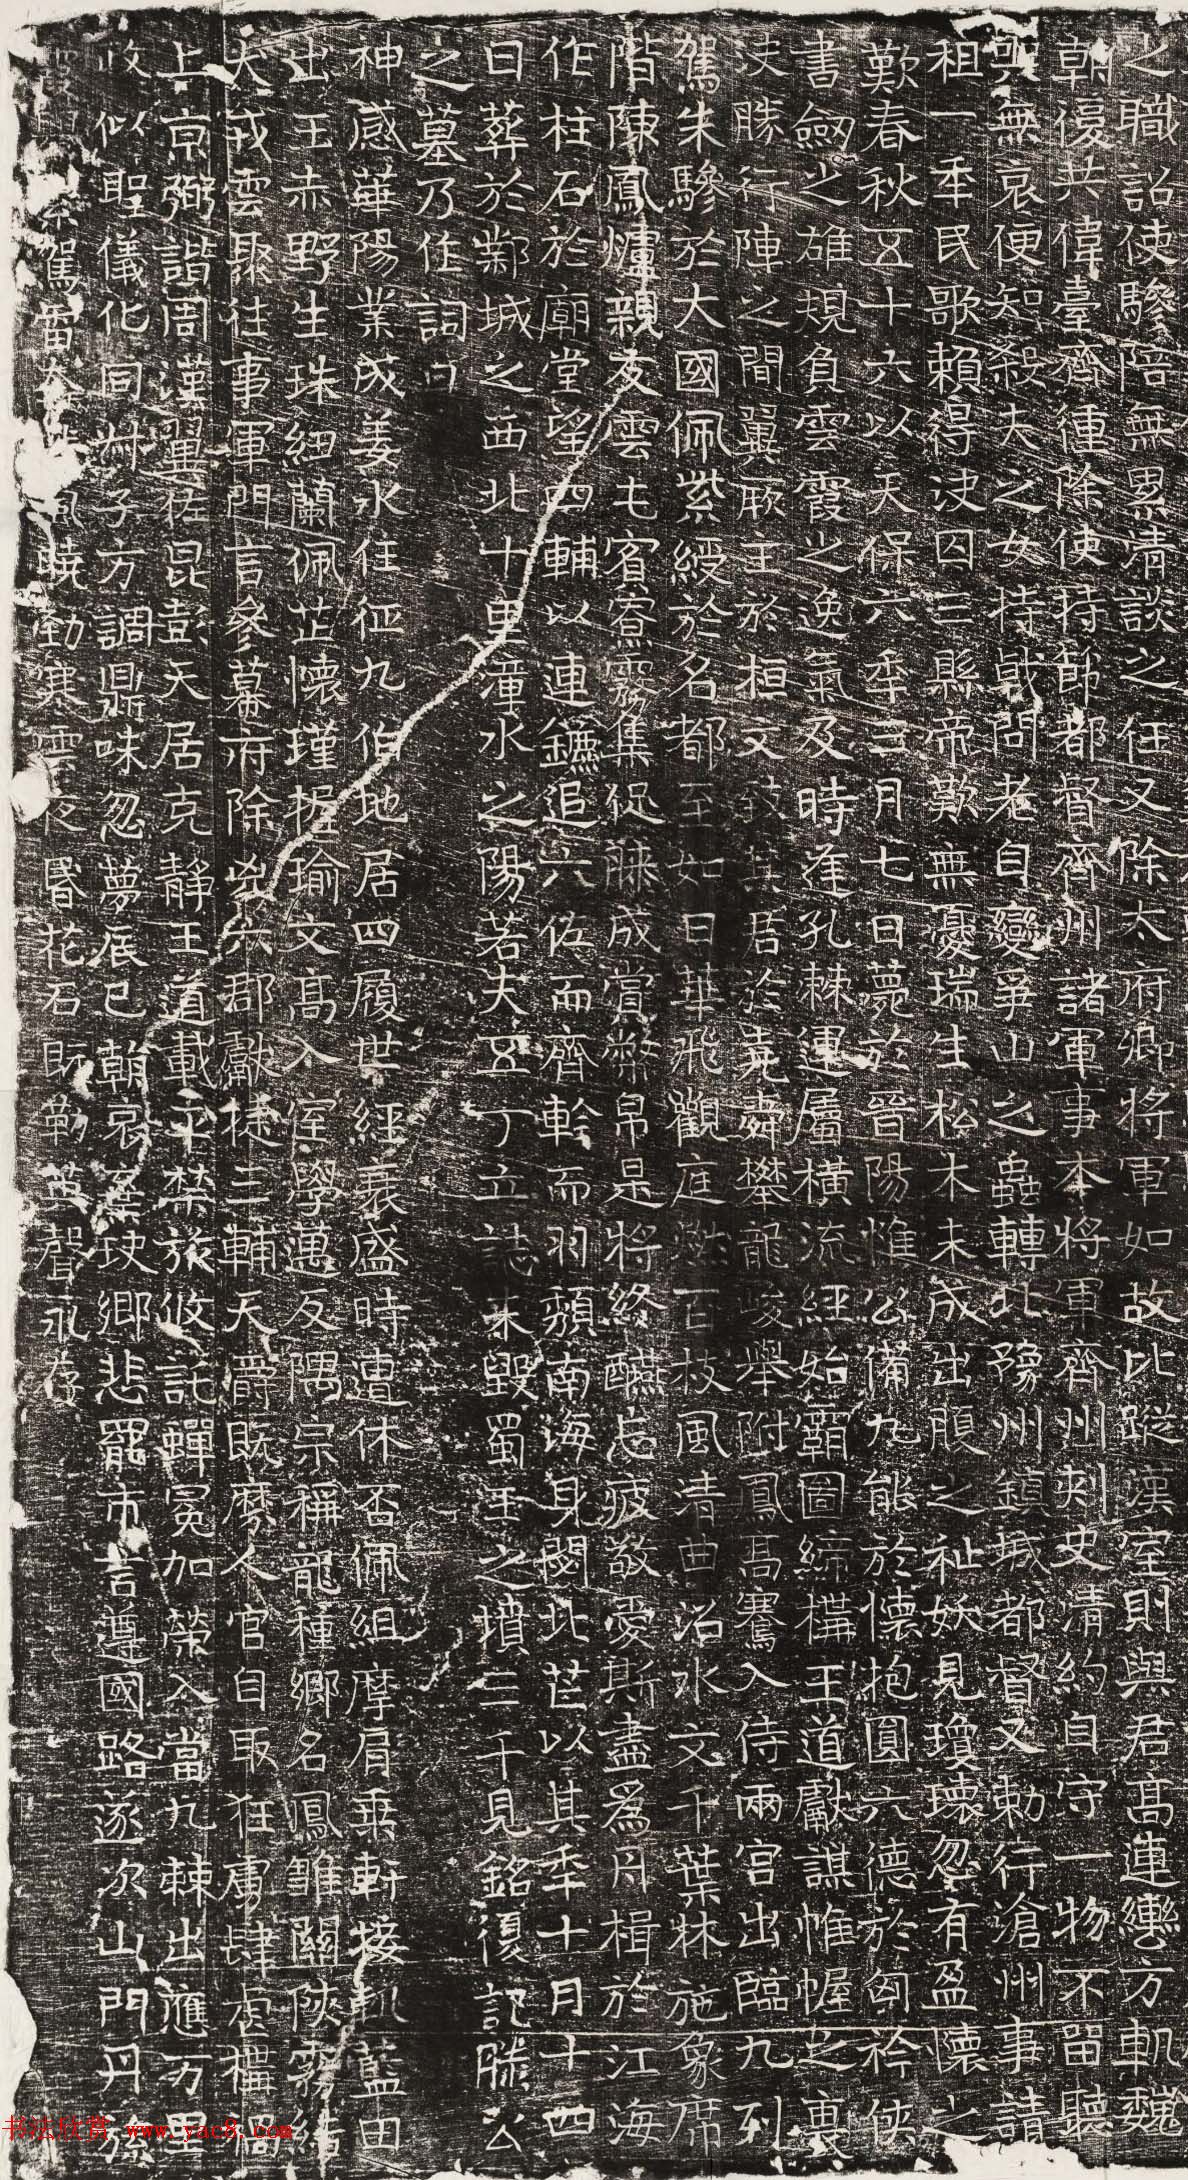 之職詔使驂陪無累清談之任又除太府卿將軍如故比蹤漢室則與君高連轡方軌魏
朝優共偉臺齊鍾除使持節都督齊州諸軍事本將軍齊州刺史清約自守一物不留聽
哭無哀便知殺夫之女持戟問老自變爭山之蟲轉北豫州鎮城都督又勑行滄州事請
租一年民歌賴得決囚三縣帝歎無憂瑞生松木未成出腹之祉妖見瓊瓌忽有盈懷之
歎春秋五十六以天保六年三月七日薨於晉陽惟公備九能於懷抱圓六德於匈衿俠
書劒之雄規負雲霞之逸氣及時逢孔棘運屬橫流經始霸圖締構王道獻謀帷幄之裏
決勝行陣之間翼厥主於桓文致其君於堯舜攀龍峻舉附鳳高騫入侍兩宮出臨九列
駕朱驂於大國佩紫綬於名都至如日華飛觀庭燃百枝風清曲沼水文千葉牀施象席
階陳鳳爐親友雲屯賓寮霧集促膝成賞弊帛是將終醼忘疲敬愛斯盡爲舟楫於江海
作柱石於廟堂望四輔以連鑣追六佐而齊幹而羽頹南海身閟北芒以其年十月十四
日葬於鄴城之西北十里漳水之陽若夫五丁立誌未毀蜀王之墳三千見銘復記滕公
之墓乃作詞曰
神感華陽業成姜水任征九伯地居四履世經衰盛時遭休否佩組摩肩乘軒接軌藍田
出玉赤野生珠紉蘭佩芷懷瑾握瑜文高入室學邁反隅宗稱龍種鄉名鳳雛關陝霧
大戎雲聚往事軍門言參幕府除兇六郡獻捷三輔天爵既縻人官自取狂虜肆虐
上京弼諧周漢翼佐昆彭天居克靜王道載平禁旅攸託蟬冕加榮入當九棘出應万里
政似聖儀化同州子方調鼎味忽夢辰巳朝哀棄玦鄉悲罷市言遵國路遂次山門丹
駕留 風曉勁寒雲夜昏花石既勒英聲永存
书法欣赏 www.yac8.com